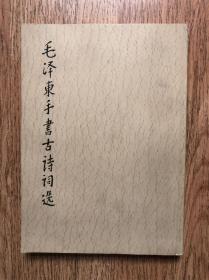 毛泽東手書古詩詞選